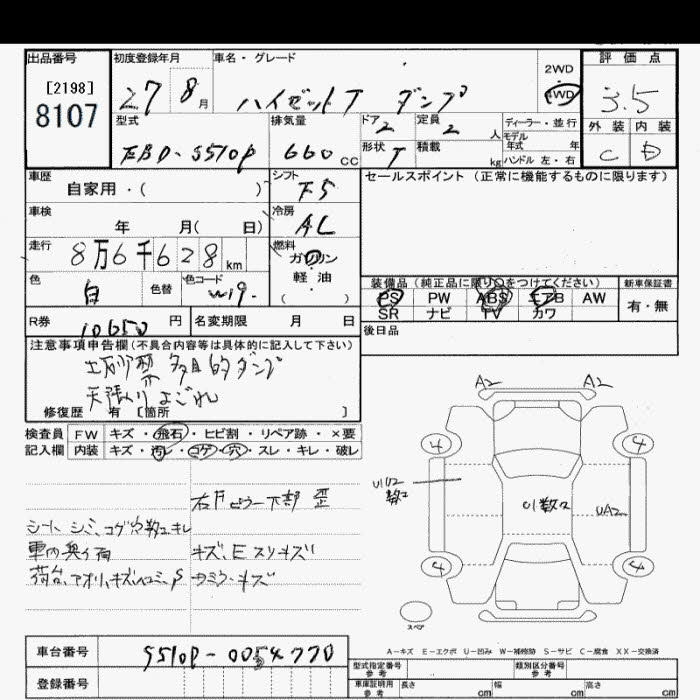 出品番号 初度登録年月 車名・グレード 2WD 評価点
[2198] 8107 27 8月 ハイゼットT ダンプ 4WD 3.5
型式 排気量 ドア 2 定員 2 人 ディーラー・並行 外装 内装
モデル年式 年
EBD-S510P 660 CC 形状 T 積載 kg ハンドル 左・右 C D
車歴 シフト セールスポイント (正常に機能するものに限ります)
自家用・( ) F5
車検 冷房
年 月( 日) AC
走行 燃料
8万6千628km ガソリン
色 色替 色コード 軽油
白 W19. ( )
装備品 (純正品に限り○をつけてください) 新車保証書
PS PW ABS エアB AW 有・無
SR ナビ TV カワ
R券 10650 円 名変期限 月 日 後日品
注意事項申告欄(不具合内容等は具体的に記入して下さい)
土砂禁 多目的ダンプ
天張りよごれ
修復歴 有 [箇所 ]
A2 A2
検査員 FW キズ・飛石・ヒビ割・リペア跡・×要
記入欄 内装 キズ・汚レ・コゲ・穴・スレ・キレ・破レ
4 4
U1U2 数ヶ U1数ヶ UA2
右Fピラー下部 歪
シート シミ、コゲ穴数ヶキレ
キズ、Eスリキズ
4 4
スペア
A-キズ E-エクボ U-凹み W-補修跡 S-サビ C-腐食 XX-交換済
車台番号 S510P-0054770
型式指定番号 参考 類別区分番号 参考
登録番号 車庫証明用 参考 長さ cm 幅 cm 高さ cm